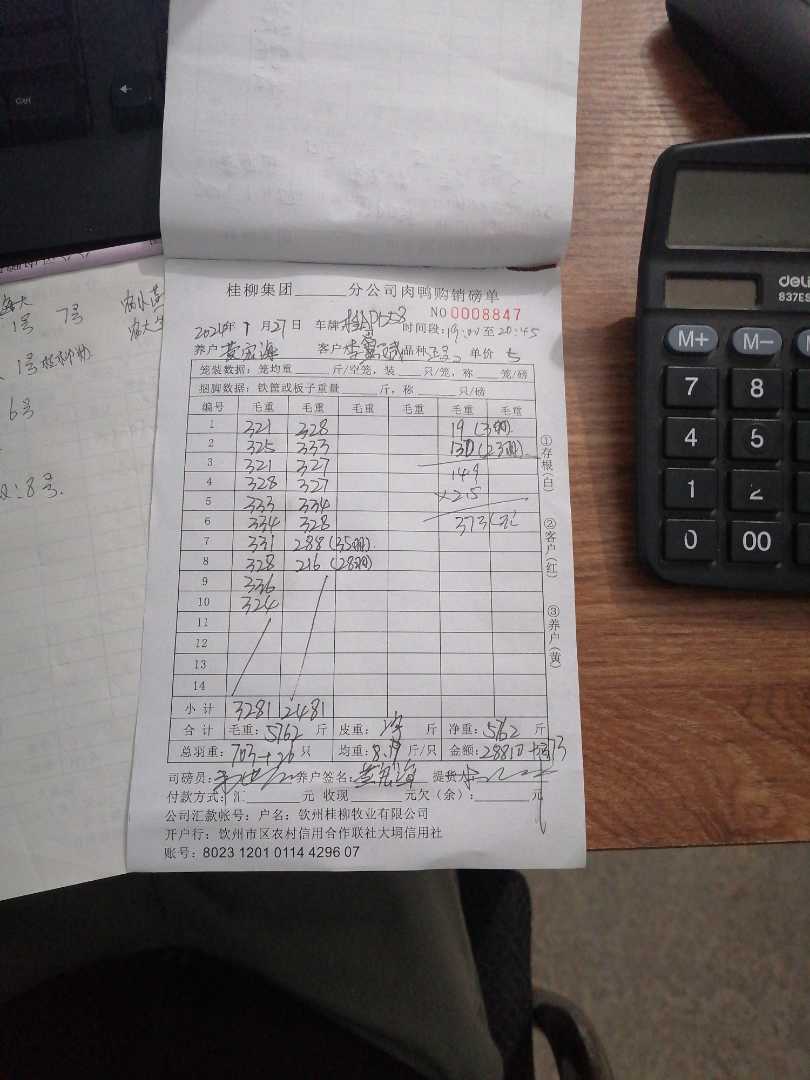 Ctrl
←
deli
837ES
M+ M-
7 8
4 5
1 2
0 00
1号 7号
1号
6号
8号.
桂柳集团______分公司肉鸭购销磅单
NO 0008847
2021年 7月27日 车牌 时间段:19:00至20:45
养户 黄宏海 客户 品种 单价 5
笼装数据:笼均重______斤/空笼,装______只/笼,称______笼/磅
捆脚数据:铁筐或板子重量______斤,称______只/磅
编号 毛重 毛重 毛重 毛重 毛重 毛重
1 321 328 19 (3只)
2 325 333 130 (23只)
3 321 327 149
4 328 327 ×2.5
5 333 334
6 334 328 373
7 331 288 (35只)
8 328 216 (28只)
9 336
10 324
11
12
13
14
小计 3281 2481
合计 毛重:5762 斤 皮重: 斤 净重:5762 斤
总羽重:703+26 只 均重:8.19 斤/只 金额:28810+373
司磅员: 养户签名:黄宏海 提货
付款方式:汇______元 收现______元欠(余):______元
公司汇款帐号:户名:钦州桂柳牧业有限公司
开户行:钦州市区农村信用合作联社大垌信用社
账号:8023 1201 0114 4296 07
①存根(白) ②客户(红) ③养户(黄)